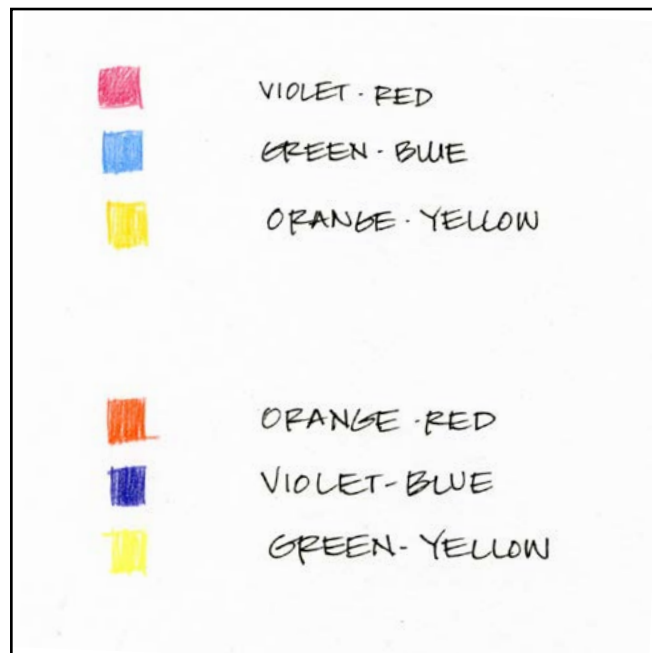 VIOLET - RED
GREEN - BLUE
ORANGE - YELLOW
ORANGE - RED
VIOLET - BLUE
GREEN - YELLOW